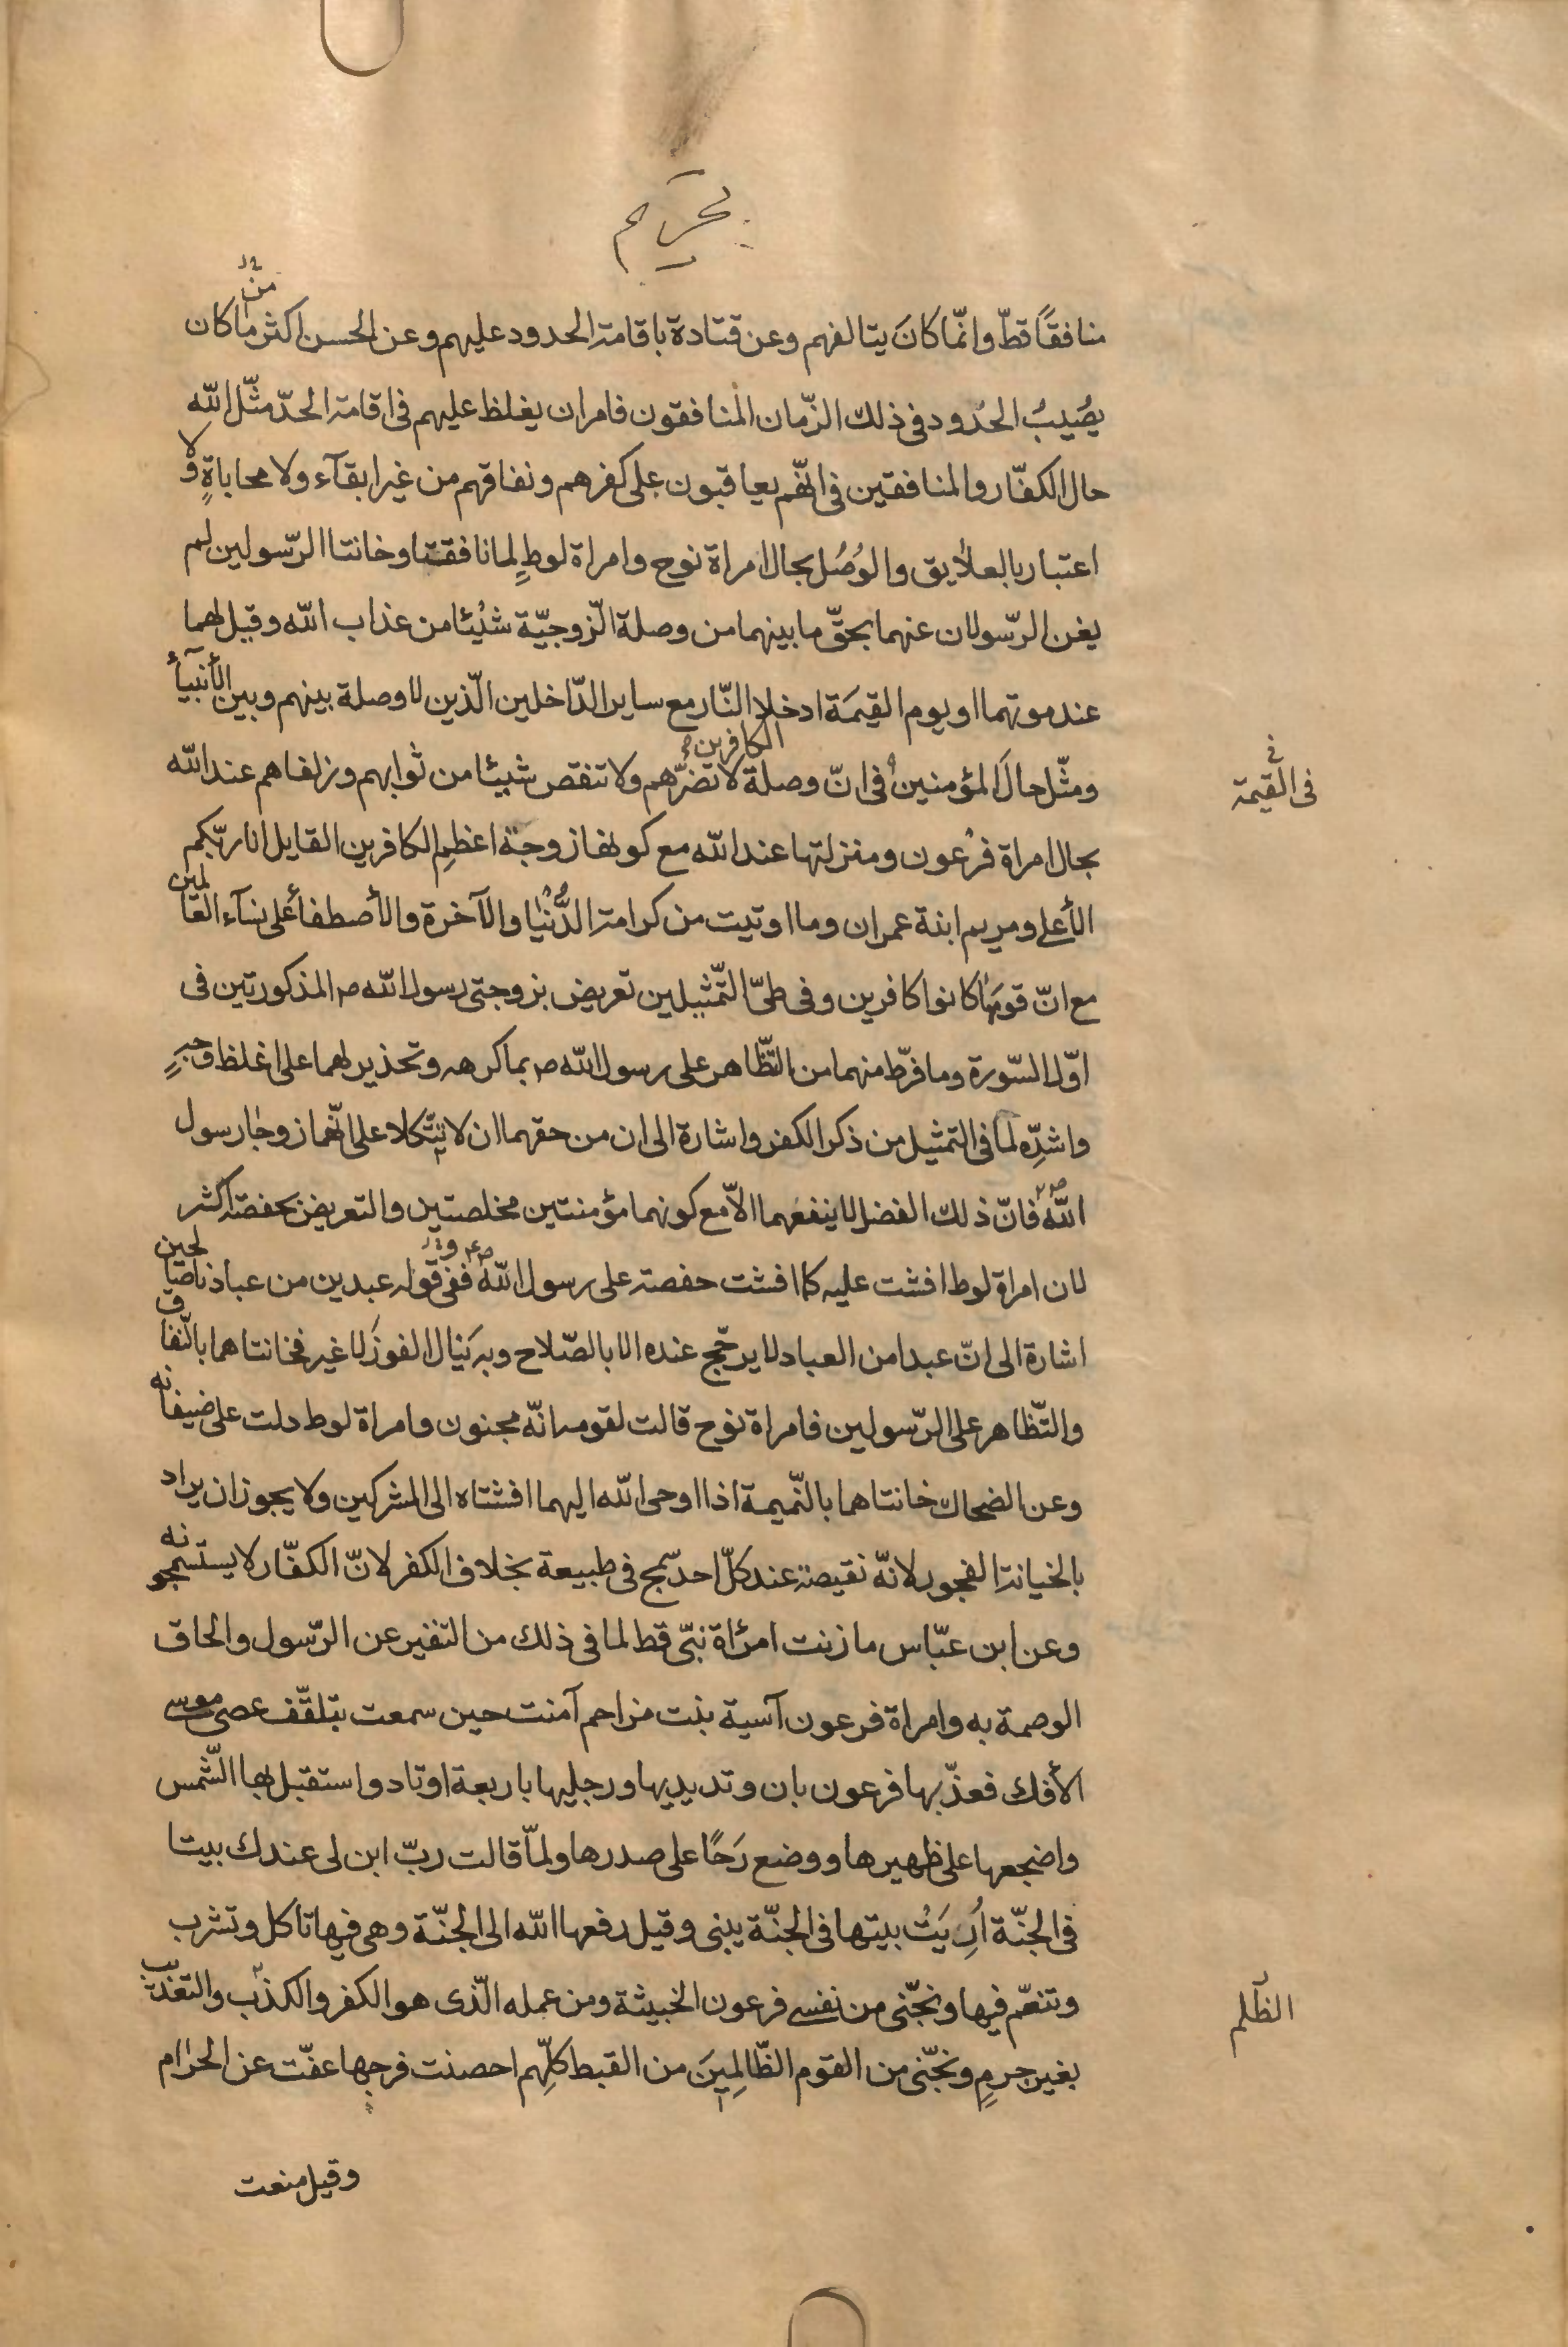 تحريم
منافقًا قطّ وانّما كانَ يتالفهم وعن قتادة باقامة الحدود عليهم وعن الحسن اكثر من ما كان
يصُيبُ الحُدود فى ذلك الزّمان المنافقون فامر ان يغلظ عليهم فى اقامة الحدّ مثّل الله
حال الكفّار والمنافقين فى انّهم يعاقبون على كفرهم ونفاقهم من غير ابقآء ولا محاباةٍ ولا
اعتبار بالعلايق والوُصُل بحال امراة نوح وامراة لوطٍ لما نافقتا وخانتا الرّسولين لم
يغن الرّسولان عنهما بحقّ ما بينهما من وصلة الزّوجيّة شئيًا من عذاب الله وقيل لهما
عند موتهما او يوم القيمَة ادخلا النّار مع ساير الدّاخلين الّذين لا وصلة بينهم وبين الأنبيآء
ومثّل حالَ المؤمنين فى انّ وصلة الكافرين لا تضرّهم ولا تنقص شيئا من ثوابهم وزلفاهم عند الله
فى القيمة
بحال امراة فرعون ومنزلتها عند الله مع كونها زوجة اعظمِ الكافرين القايل انا ربّكم
الأعلى ومريم ابنة عمران وما اوتيت من كرامة الدُّنيا والآخرة والأصطفأ على نسآء العالمين
مع انّ قومها كانوا كافرين وفى طىّ التّمثيلين تعريض بزوجتى رسول الله ص المذكورتين فى
اوّل السّورة وما فرّط منهما من التّظاهر على رسول الله ص بما كرهه وتحذير لهما على اغلظ وجهٍ
واشدِّه لما فى التمثيل من ذكر الكفر واشارة الى ان من حقهما ان لا يتّكلا على انّهما زوجا رسول
الله ص فانّ ذلك الفضل لا ينفعهما الاّ مع كونهما مؤمنتين مخلصتين والتعريض بحفصة اكثر
لان امراة لوط افشت عليه كما افشت حفصة على رسول الله ص وفى قوله عبدين من عبادنا صالحين
اشارة الى انّ عبدا من العباد لا يرجّح عنده الا بالصّلاح وبه يَنال الفوزَ لا غير فخانتاهما بالنّفاق
والتّظاهر على الرّسولين فامراة نوح قالت لقومه انّه مجنون وامراة لوط دلت على ضيفانه
وعن الضحاك خانتاهما بالنّميمة اذا اوحى الله اليهما افشتاه الى المشركين ولا يجوز ان يراد
بالخيانة الفجور لانّه نقيصة عند كلّ احد سّمج فى طبيعة بخلاف الكفر لانّ الكفّار لا يستسمجونه
وعن ابن عبّاس ما زنت امرأة نبّى قط لما فى ذلك من التفير عن الرّسول والحاق
الوصمة به وامراة فرعون آسية بنت مزاحم آمنت حين سمعت بتلقّف عصى موسى
الأفك فعذّبها فرعون بان وتد يديها ورجليها باربعة اوتاد واستقبل بها الشّمس
واضجعها على ظهيرها ووضع رَحًا على صدرها ولمّا قالت ربّ ابن لى عندك بيتا
فى الجنّة اُرِيَتْ بيتها فى الجنّة يبنى وقيل رفعها الله الى الجنّة وهى فيها تاكل وتشرب
وتنعّم فيها ونجّنى من نفس فرعون الخبيثة ومن عمله الّذى هو الكفر والكذب والتعذيب
الظلم
بغير جرمٍ ونجّنى من القوم الظّالِمِينَ من القبط كلِّهم احصنت فرجها عفّت عن الحرام
وقيل منعت